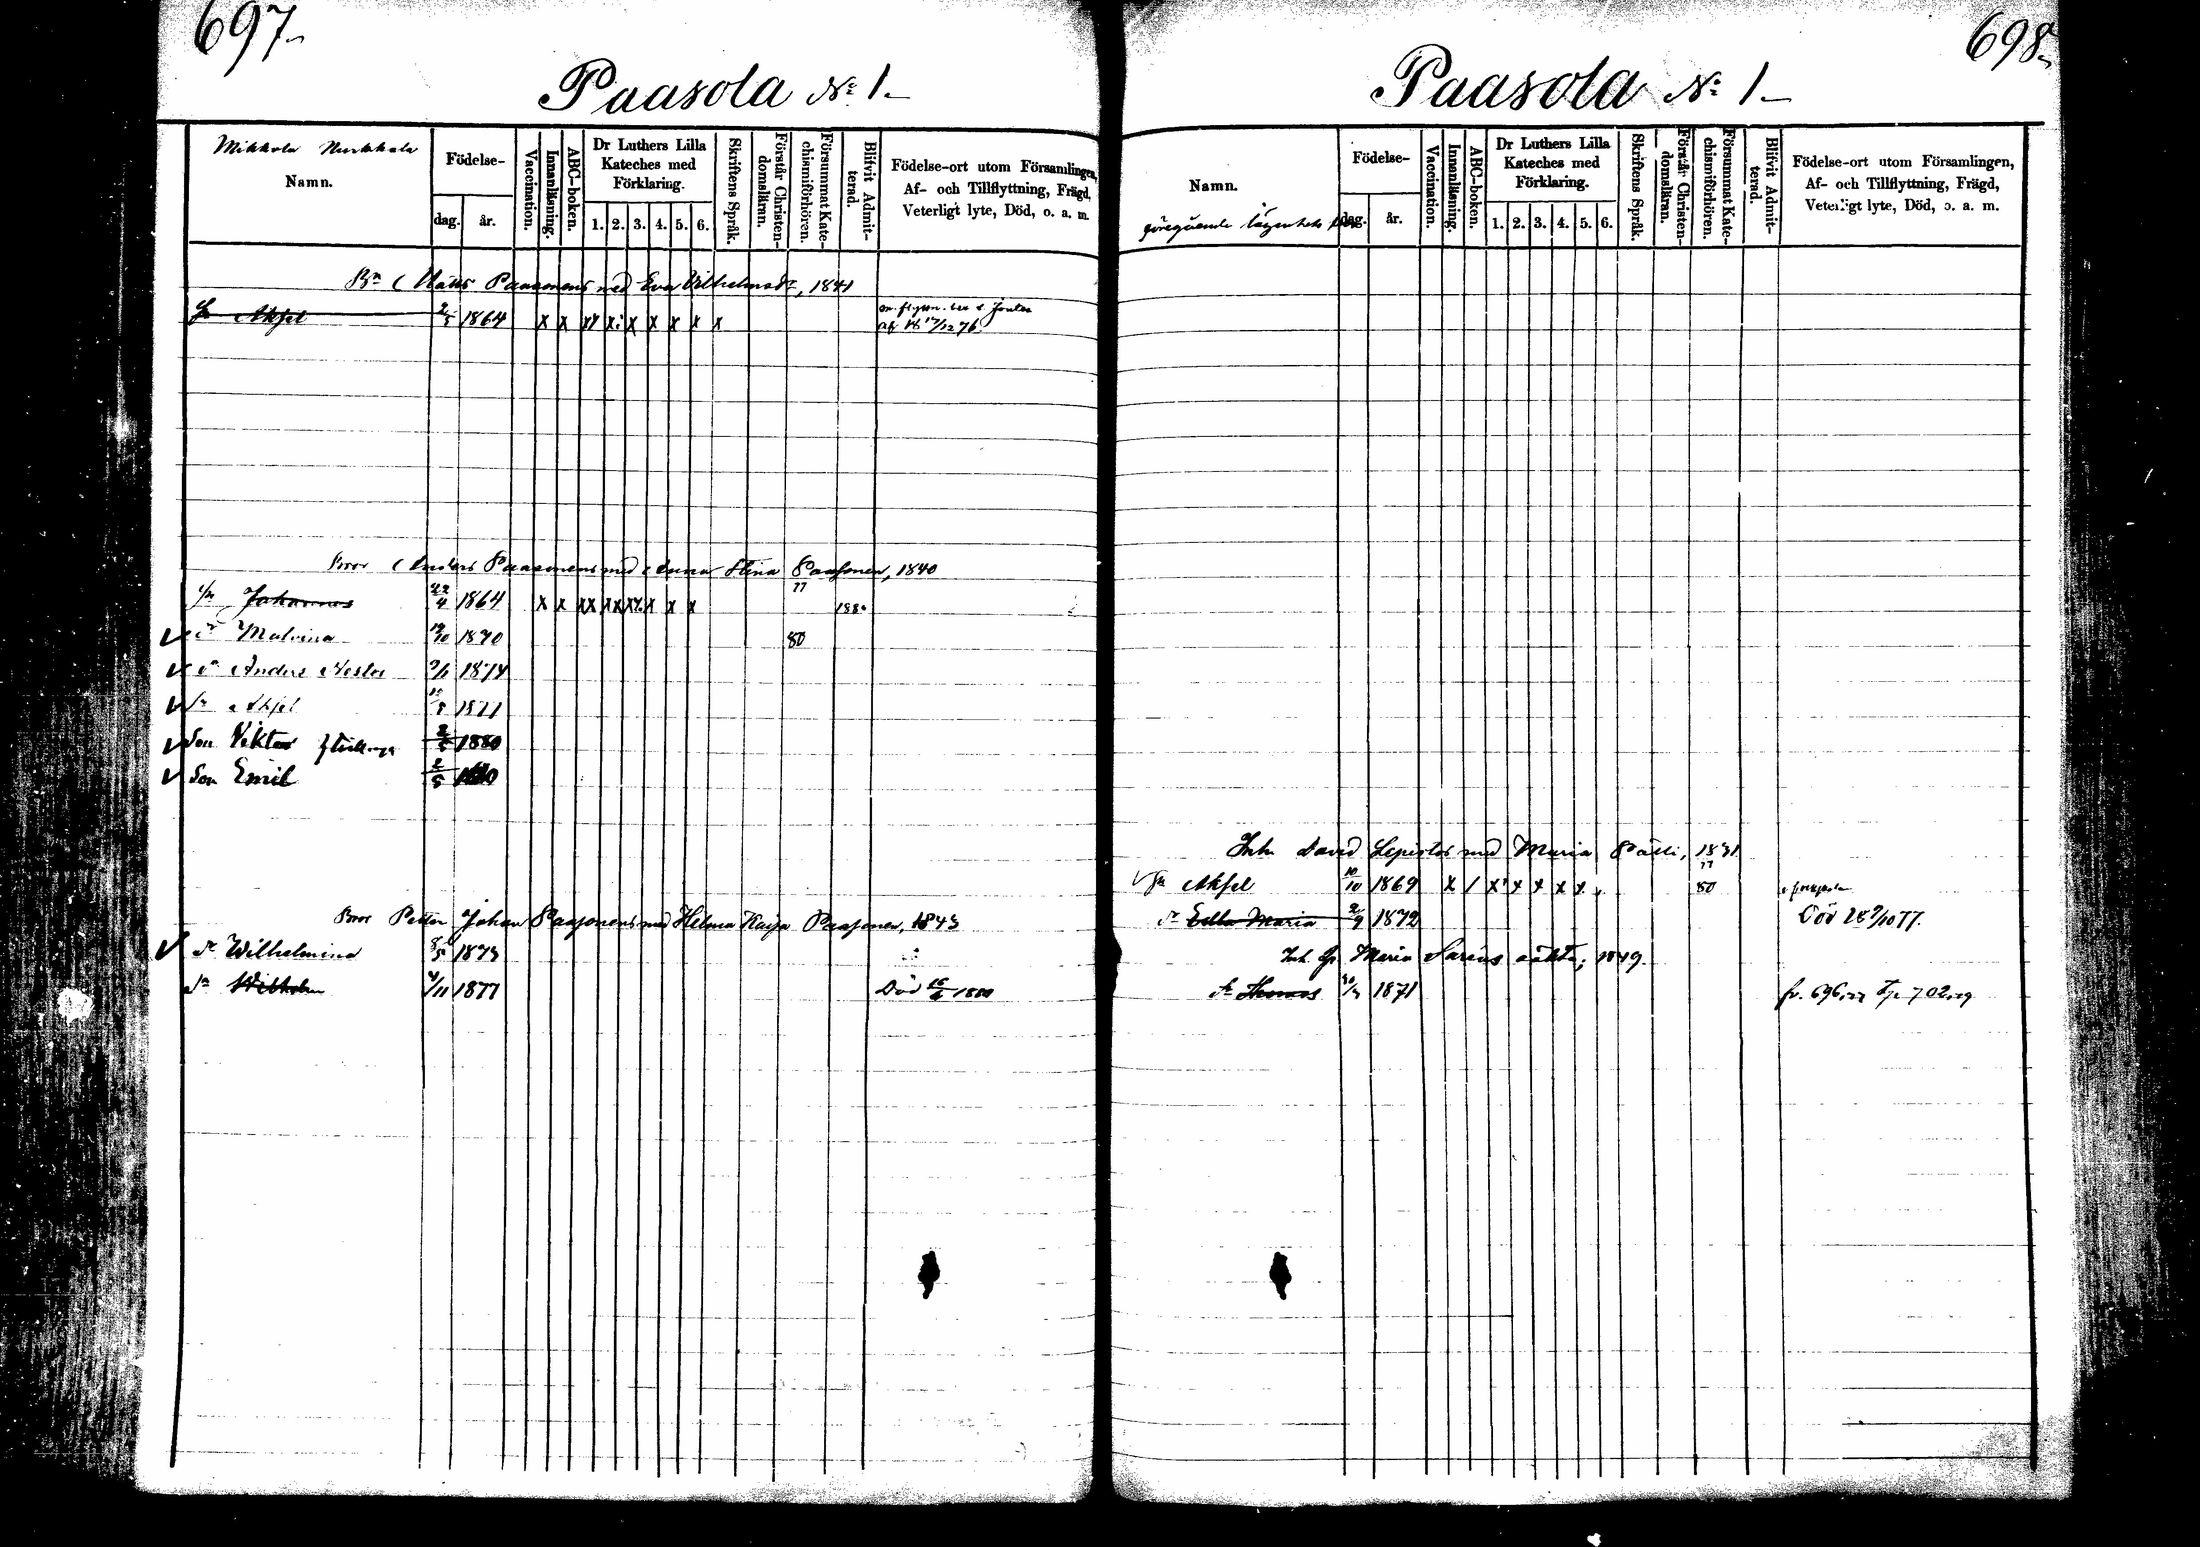 697
Paasola No 1.
Mikkola Nurkkala
Namn.
Födelse-
dag.
år.
Vaccination.
Innanläsning.
ABC-boken.
Dr Luthers Lilla
Kateches med
Förklaring.
1. 2. 3. 4. 5. 6.
Skriftens Språk.
Förstår Christen-
domsläran.
Försummat Kate-
chismiförhören.
Blifvit Admit-
terad.
Födelse-ort utom Församlingen,
Af- och Tillflyttning, Frägd,
Veterligt lyte, Död, o. a. m.
Matts Paasonens med Eva Vilhelmsdr, 1841
Aksel 2/5 1864 x x x x x x x x x
Bror Anders Paasonens med Anna Stina Paasonen, 1840
Johannes 22/4 1864 x x xx xx x x x x 77 1880
Malvina 19/10 1870 80
Anders Nestor 9/1 1874
Aksel
Son Viktor 2/5 1880
Son Emil 2/5
Bror Petter Johan Paasonens med Helena Kaisa Paasonen, 1843
dr Wilhelmina 8/5 1873
Sn Wilhelm 4/11 1877 Död 1880
698
Paasola No 1
Namn.
föregående lägenhets
Födelse-
dag.
år.
Vaccination.
Innanläsning.
ABC-boken.
Dr Luthers Lilla
Kateches med
Förklaring.
1. 2. 3. 4. 5. 6.
Skriftens Språk.
Förstår Christen-
domsläran.
Försummat Kate-
chismiförhören.
Blifvit Admit-
terad.
Födelse-ort utom Församlingen,
Af- och Tillflyttning, Frägd,
Veterligt lyte, Död, o. a. m.
Inh. David Lepistös med Maria 1831
Aksel 10/10 1869 x / x x x x x 77 80
dr Edla Maria 2/9 1872 Död 28 9/10 77.
Inh. Maria oäkta, 1849.
Sn Thomas 1871 fr. 696 702